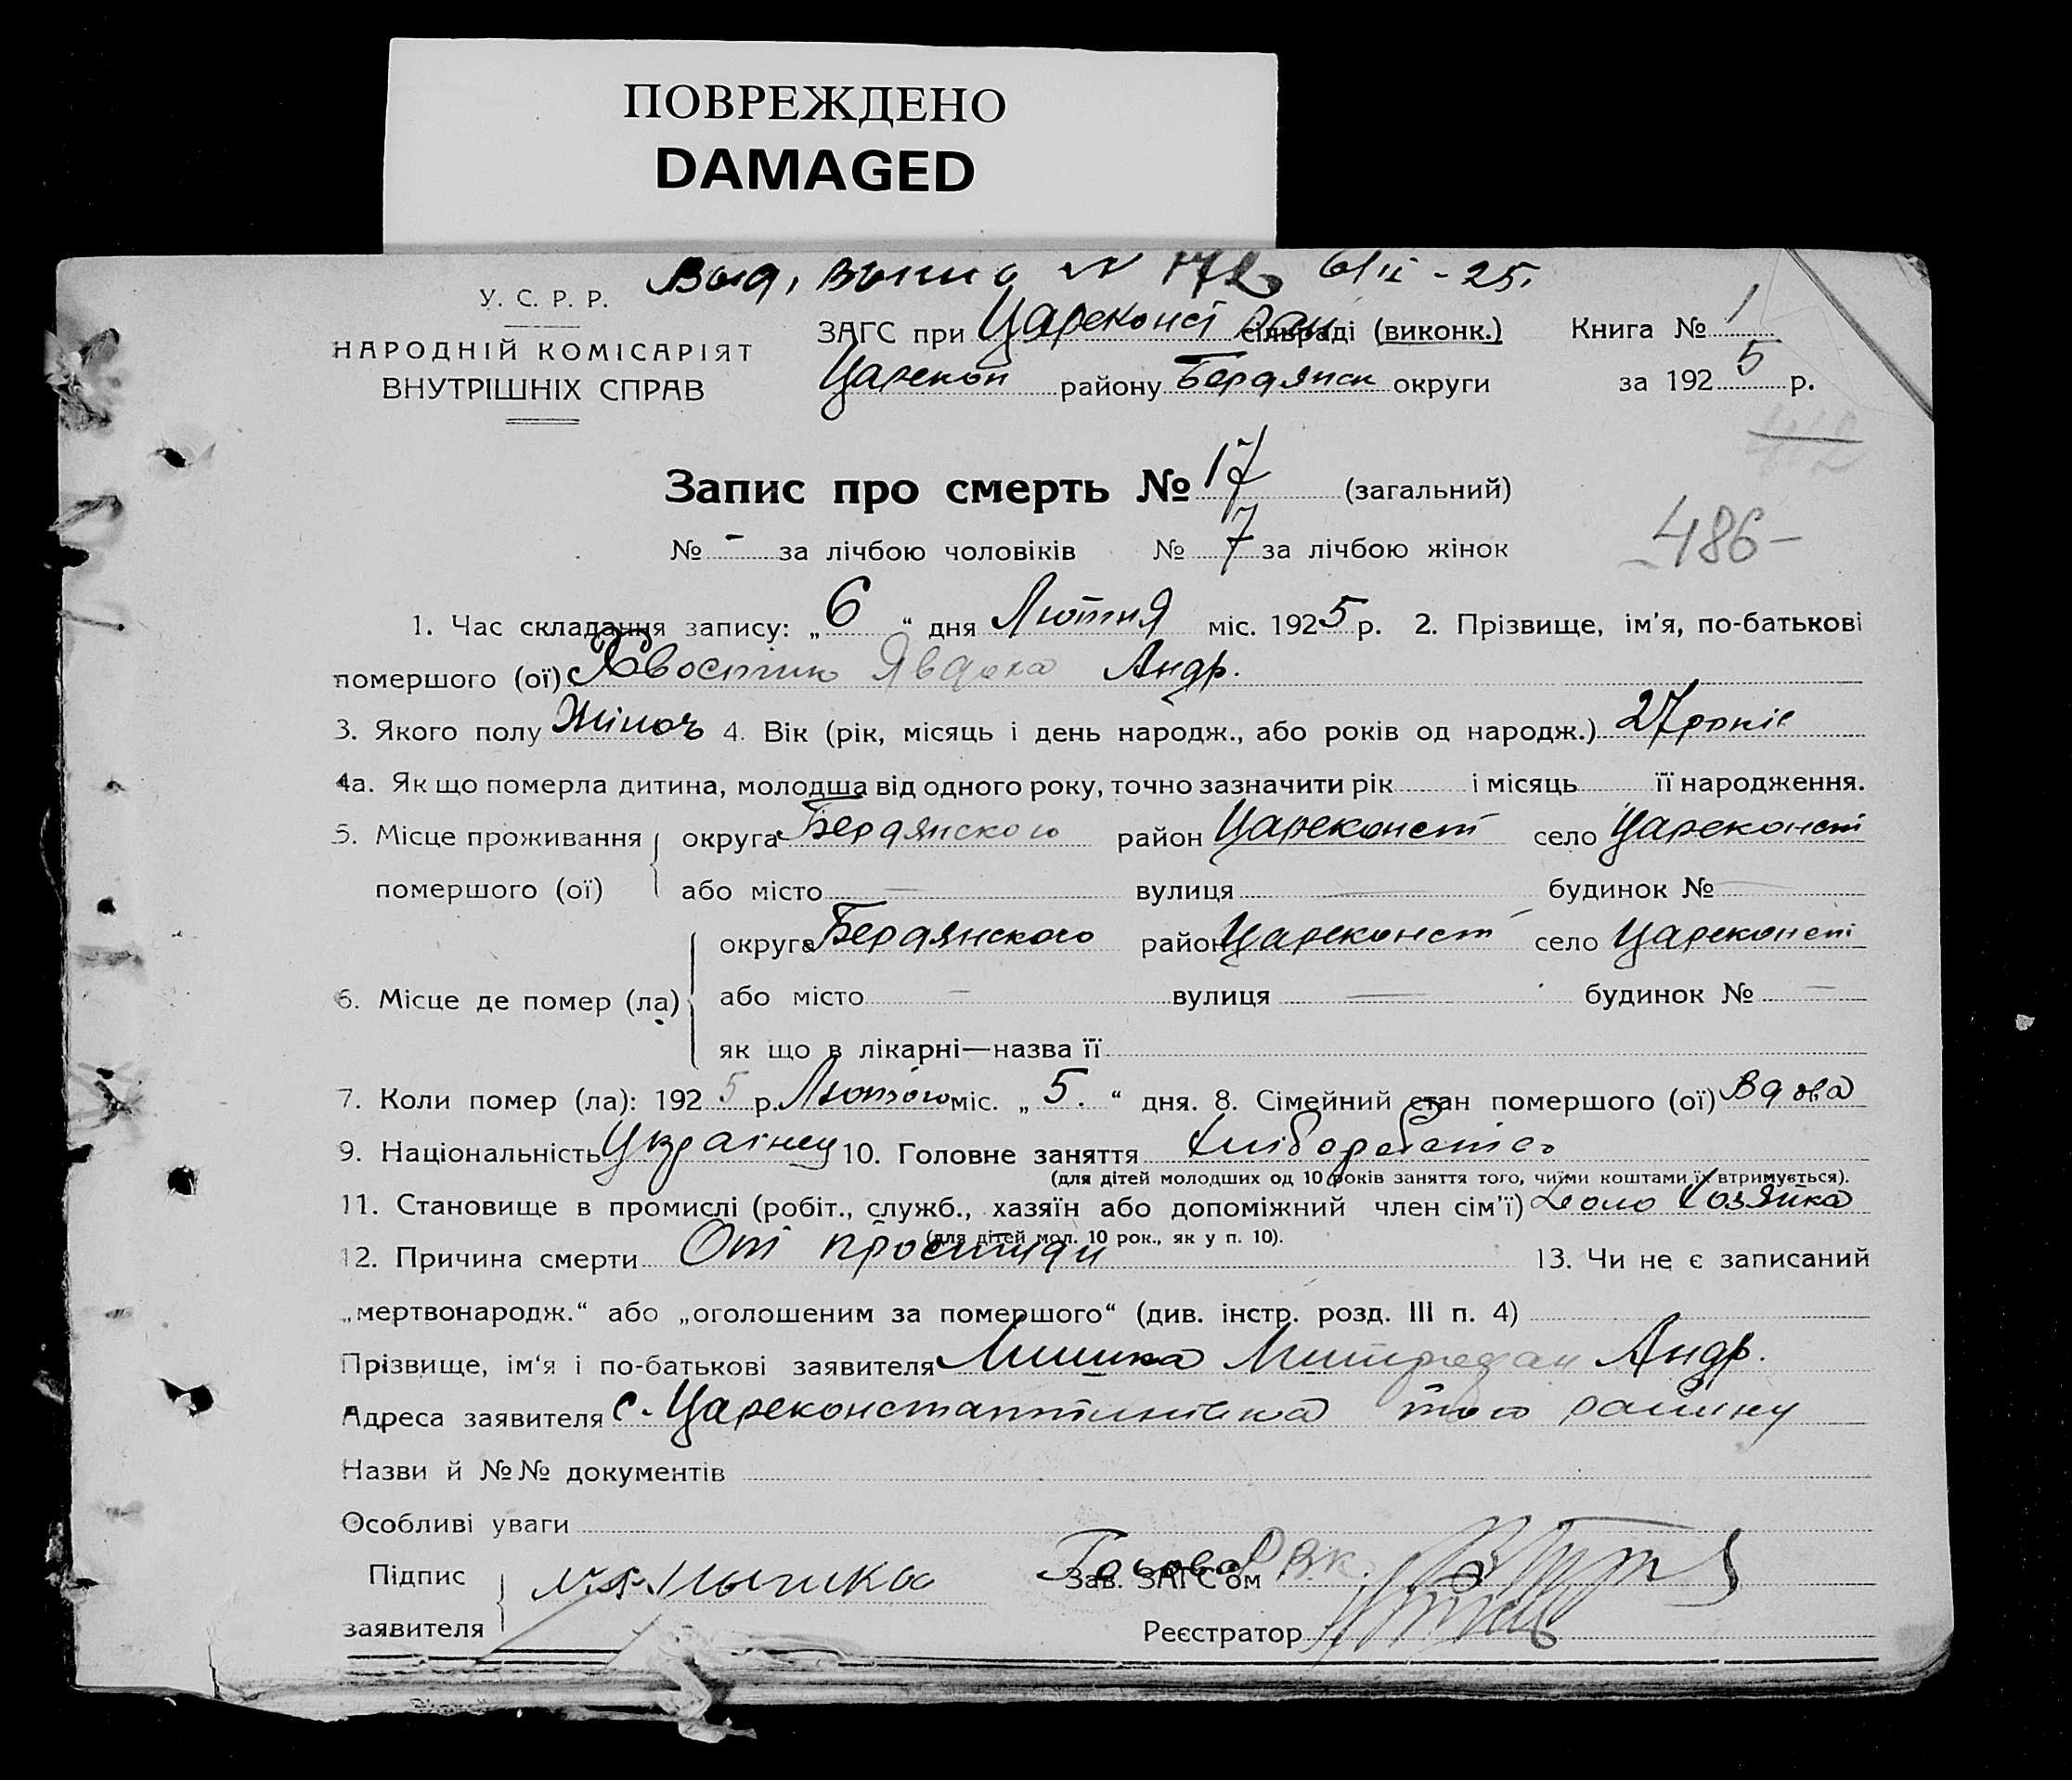 ПОВРЕЖДЕНО
DAMAGED
У. С. Р. Р.
НАРОДНІЙ КОМІСАРІЯТ
ВНУТРІШНІХ СПРАВ
№ 172 6/II - 25.
ЗАГС при Цареконст Рай сільраді (виконк.) Книга № 1
Царекон району Бердянск округи за 1925 р.
412
Запис про смерть № 17 (загальний)
№ - за лічбою чоловіків № 7 за лічбою жінок
486-
1. Час складання запису: „6“ дня Лютня міс. 1925 р. 2. Прізвище, ім'я, по-батькові
помершого (ої) Хвостик Явдоха Андр.
3. Якого полу Жіноч 4. Вік (рік, місяць і день народж., або років од народж.) 27 років
4а. Як що померла дитина, молодша від одного року, точно зазначити рік і місяць її народження.
5. Місце проживання округа Бердянского район Цареконст село Цареконст
помершого (ої) або місто — вулиця — будинок № —
округа Бердянского район Цареконст село Цареконст
6. Місце де помер (ла) або місто — вулиця — будинок № —
як що в лікарні—назва її
7. Коли помер (ла): 1925 р. Лютого міс. „5.“ дня. 8. Сімейний стан помершого (ої) Вдова
9. Національність Украінец 10. Головне заняття
(для дітей молодших од 10 років заняття того, чиїми коштами їх втримується).
11. Становище в промислі (робіт., служб., хазяїн або допоміжний член сім'ї) Хозяйка
(для дітей мол. 10 рок., як у п. 10).
12. Причина смерти От простуди 13. Чи не є записаний
„мертвонародж.“ або „оголошеним за помершого“ (див. інстр. розд. III п. 4)
Прізвище, ім'я і по-батькові заявителя Митрофан Андр.
Адреса заявителя с. Цареконстантинівка того району
Назви й №№ документів
Особливі уваги
Підпис Голова РВК
Зав. ЗАГС'ом
заявителя Реєстратор